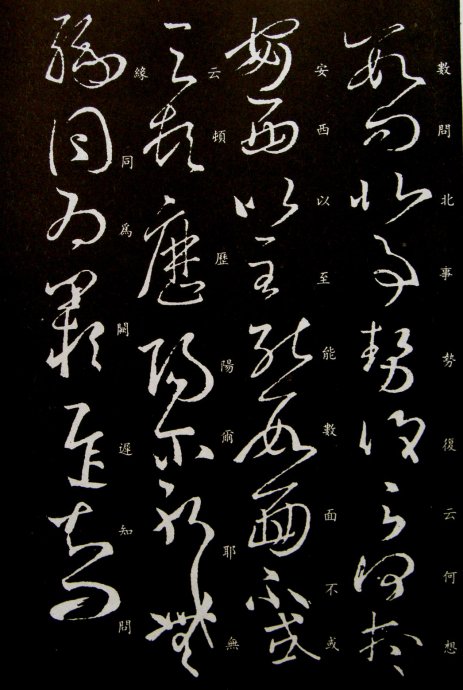 數問北事勢復云何想
安西以至能數面不或
云頓歷陽爾耶無
緣同爲闕遲知問